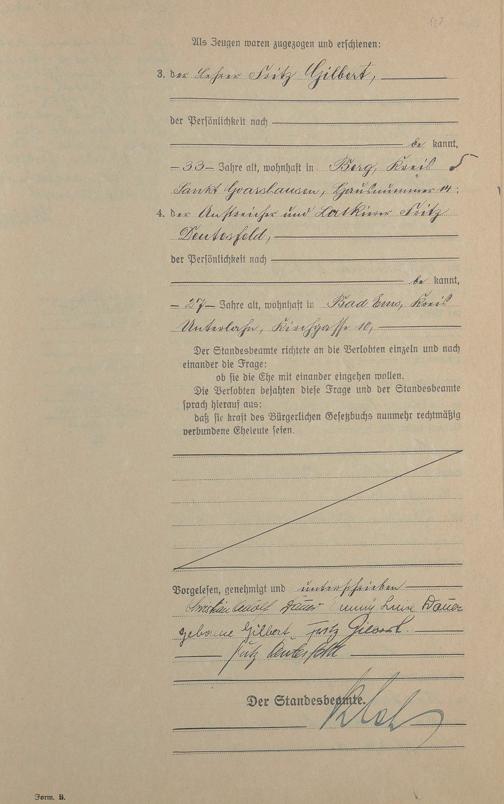 Als Zeugen waren zugezogen und erschienen:
3. der Lehrer Fritz Gilbert,
der Persönlichkeit nach
be kannt,
33 Jahre alt, wohnhaft in Berg, Kreis
Sankt Goarshausen, Hausnummer
4. der Anstreicher und Lackierer Fritz
Deutesfeld,
der Persönlichkeit nach
be kannt,
27 Jahre alt, wohnhaft in Bad Ems, Kreis
Unterlahn, Kirchgasse 10,
Der Standesbeamte richtete an die Verlobten einzeln und nach
einander die Frage:
ob sie die Ehe mit einander eingehen wollen.
Die Verlobten bejahten diese Frage und der Standesbeamte
sprach hierauf aus:
daß sie kraft des Bürgerlichen Gesetzbuchs nunmehr rechtmäßig
verbundene Eheleute seien.
Vorgelesen, genehmigt und unterschrieben
Dauer Luise Dauer
geborne Gilbert, Fritz Gilbert.
Fritz Deutesfeld
Der Standesbeamte.
Form. B.